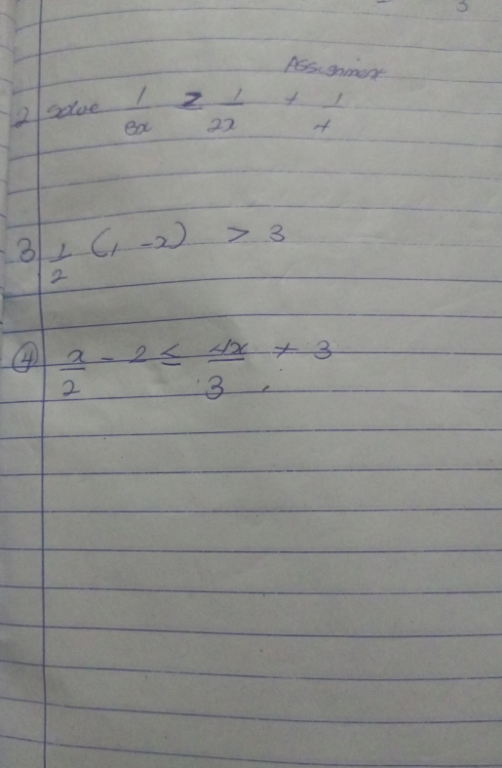 3
Assignment
2 solve 1/3x ≥ 1/2x + 1/4
3 1/2 (1 -x) > 3
④ x/2 - 2 ≤ 4x/3 + 3